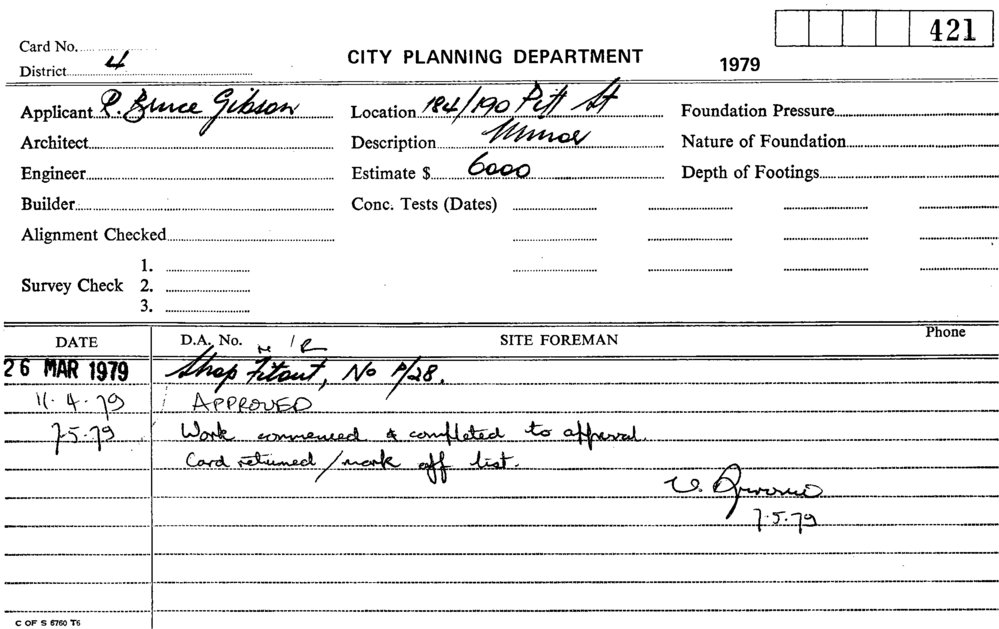 421
Card No.
CITY PLANNING DEPARTMENT 1979
District 4
Applicant P. Bruce Gibson Location 184/190 Pitt St Foundation Pressure
Architect Description Minor Nature of Foundation
Engineer Estimate $ 6000 Depth of Footings
Builder Conc. Tests (Dates)
Alignment Checked
1.
Survey Check 2.
3.
DATE D.A. No. SITE FOREMAN Phone
26 MAR 1979 Shop Fitout, No P/28.
11.4.79 APPROVED
7.5.79 Work commenced & completed to approval.
Card returned/mark off list.
7.5.79
C OF S 6760 T6